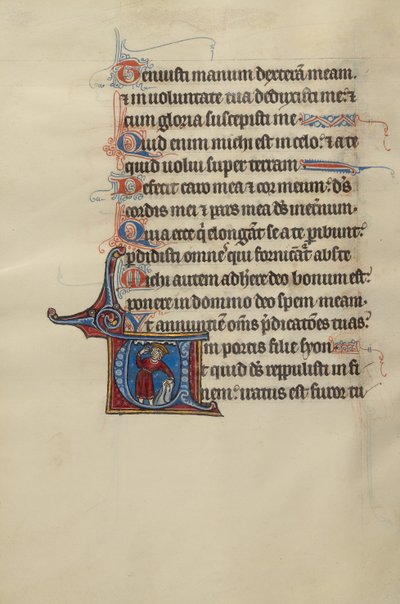 Tenuisti manum dexterã meam.
& in uoluntate tua deduxisti me: &
cum gloria suscepisti me
Quid enim michi est in celo: & a te
quid uolui super terram
Defecit caro mea & cor meum: d̃s
cordis mei & pars mea d̃s in et̃num.
Quia ecce q̃ elongãt se a te p̃ibunt:
p̃didisti omnes qui fornicãt̃ abs te
Michi autem adherere deo bonum est:
ponere in domino deo spem meam.
Vt annunciem om̃s p̃dicatões tuas:
in portis filie syon
Ut quid d̃s reppulisti in fi
nem: iratus est furor tu